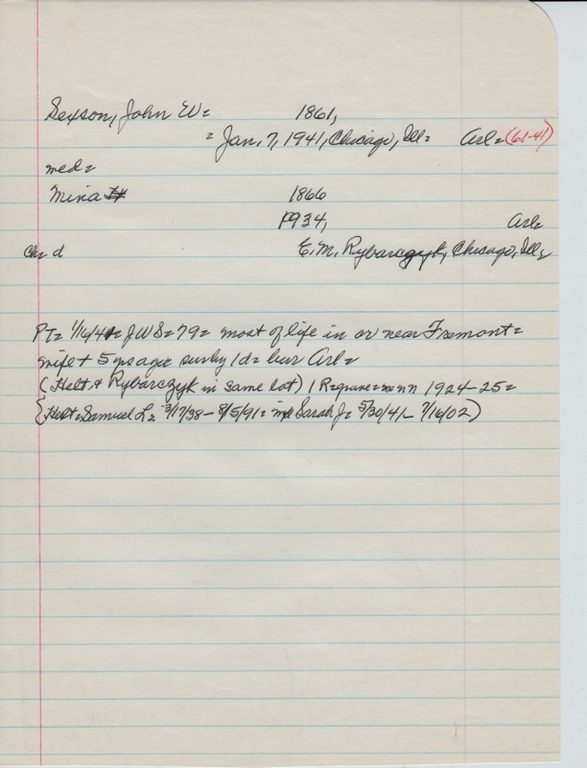 Sexson, John W= 1861,
= Jan. 7, 1941, Chicago, Ill= Arl= (61-41)
med=
Mina 1866
1934, Arl=
Ch= d E.M. Rybarczyk, Chicago, Ill=
PT= 1/16/41= JWS= 79= most of life in or near Fremont=
wife + 5 yrs ago= surv by 1d= bur Arl=
(Helt & Rybarczyk in same lot) 1924-25=
(Helt= Samuel L= 3/17/38 - 8/5/91= Sarah J= 5/30/41 - 7/16/02)